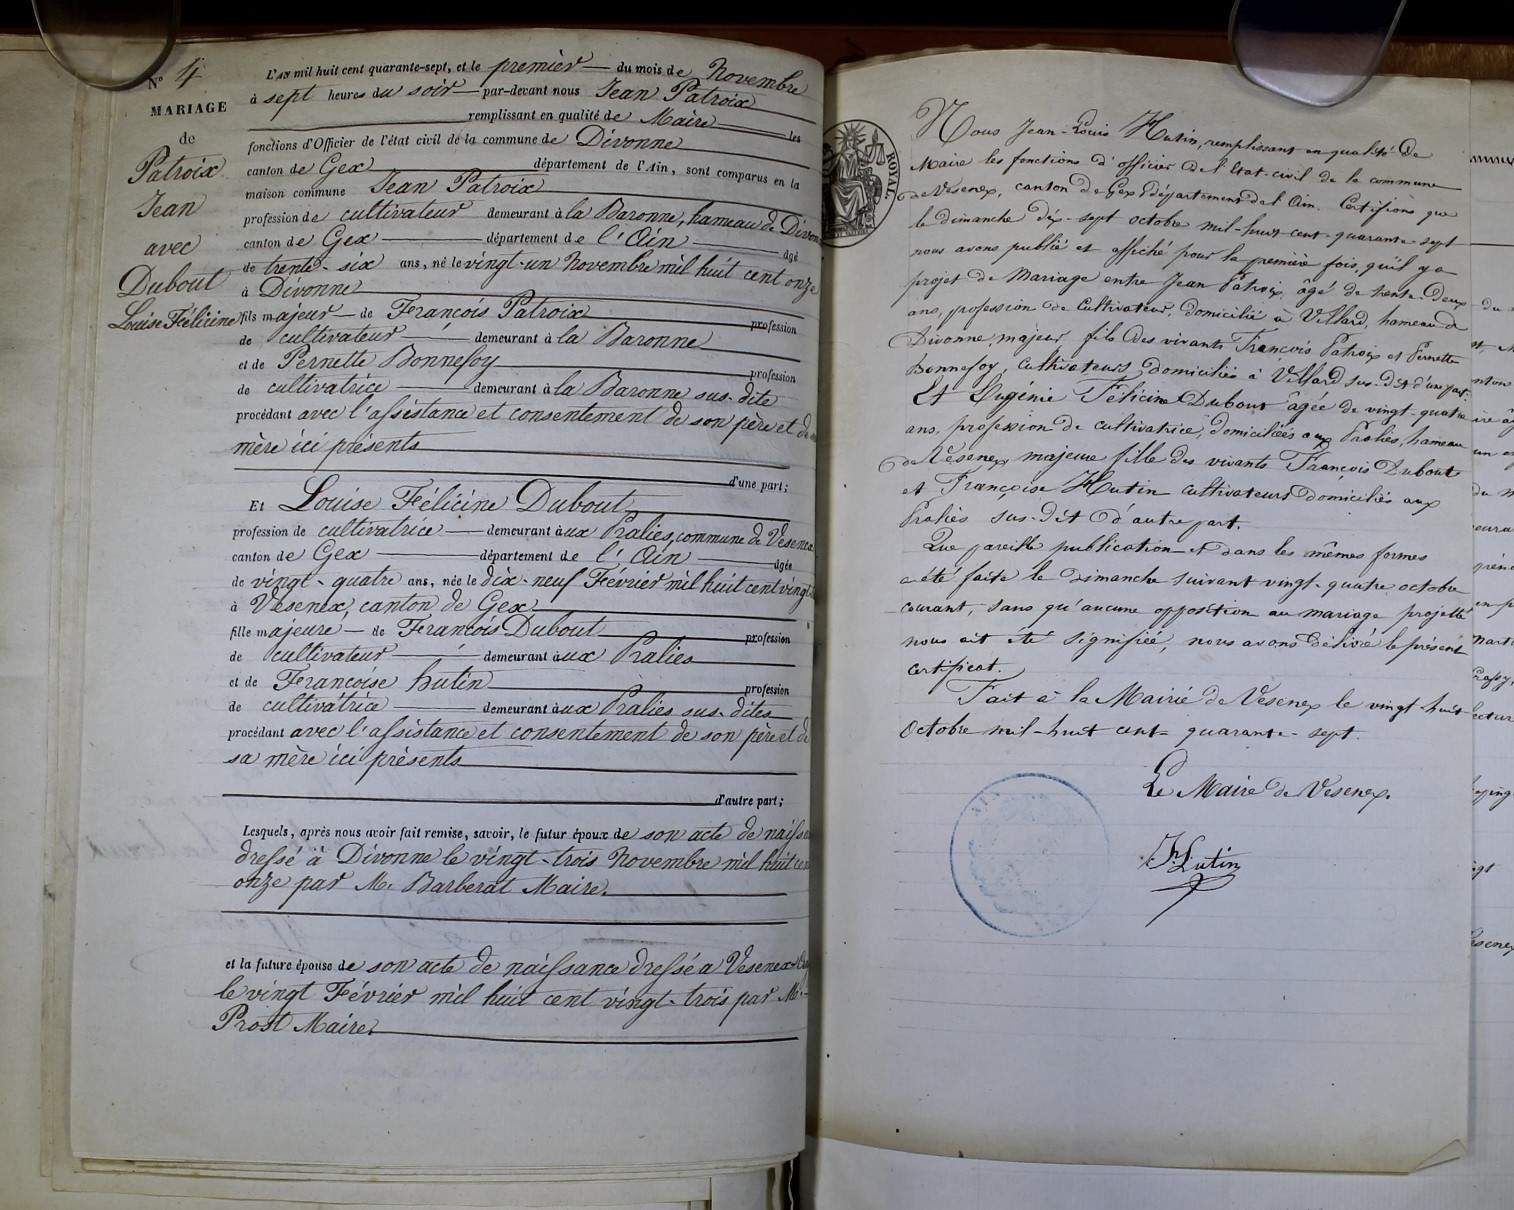 N° 4
MARIAGE
de
Patroix
Jean
avec
Dubout
Louise Félicine
L'AN mil huit cent quarante-sept, et le premièr du mois de Novembre
à sept heures du soir par-devant nous Jean Patroix
remplissant en qualité de Maire les
fonctions d'Officier de l'état civil de la commune de Divonne
canton de Gex département de l'Ain, sont comparus en la
maison commune Jean Patroix
profession de cultivateur demeurant à la Baronne, hameau de Divonne
canton de Gex département de l'Ain âgé
de trente-six ans, né le vingt-un Novembre mil huit cent onze
à Divonne
fils majeur de François Patroix profession
de cultivateur demeurant à la Baronne
et de Pernette Bonnefoy profession
de cultivatrice demeurant à la Baronne sus-dite
procédant avec l'assistance et consentement de son père et de
mère ici présents
d'une part;
Et Louise Félicine Dubout
profession de cultivatrice demeurant aux Pralies, commune de Vesenex
canton de Gex département de l'Ain âgée
de vingt-quatre ans, née le dix-neuf Février mil huit cent vingt
à Vesenex, canton de Gex
fille majeure de François Dubout profession
de cultivateur demeurant aux Pralies
et de Françoise hutin profession
de cultivatrice demeurant aux Pralies sus-dites
procédant avec l'assistance et consentement de son père et de
sa mère ici présents
d'autre part;
Lesquels, après nous avoir fait remise, savoir, le futur époux de son acte de naiss
dressé à Divonne le vingt-trois Novembre mil huit cen
onze par Mr. Barberat Maire.
et la future épouse de son acte de naissance dressé à Vesenex
le vingt Février mil huit cent vingt-trois par Mr.
Prost Maire.
ROYAL
Nous Jean-Louis Hutin, remplissant en qualité de
Maire les fonctions d'officier de l'Etat-civil de la commune
de Vesenex, canton de Gex, département de l'Ain. Certifions que
le dimanche dix-sept octobre mil-huit-cent-quarante-sept
nous avons publié et affiché pour la première fois, qu'il y a
projet de Mariage entre Jean Patroix, âgé de trente-deux
ans, profession de Cultivateur, domicilié à Villard, hameau de
Divonne, majeur fils des vivants François Patroix et Pernette
Bonnefoy, Cultivateurs, domiciliés à Villard sus-dit d'une part.
Et Eugénie Félicine Dubout âgée de vingt-quatre
ans, profession de cultivatrice, domiciliées aux Pralies, hameau
de Vésenex, majeure fille des vivants François Dubout
et Françoise Hutin cultivateurs domiciliés aux
Pralies sus-dit d'autre part.
Que pareille publication et dans les mêmes formes
a été faite le dimanche suivant vingt-quatre octobre
courant, sans qu'aucune opposition au mariage projetté
nous ait été signifiée, nous avons délivré le présent
certificat.
Fait à la Mairie de Vésenex le vingt-huit
Octobre mil-huit cent-quarante-sept.
Le Maire de Vesenex.
Hutin